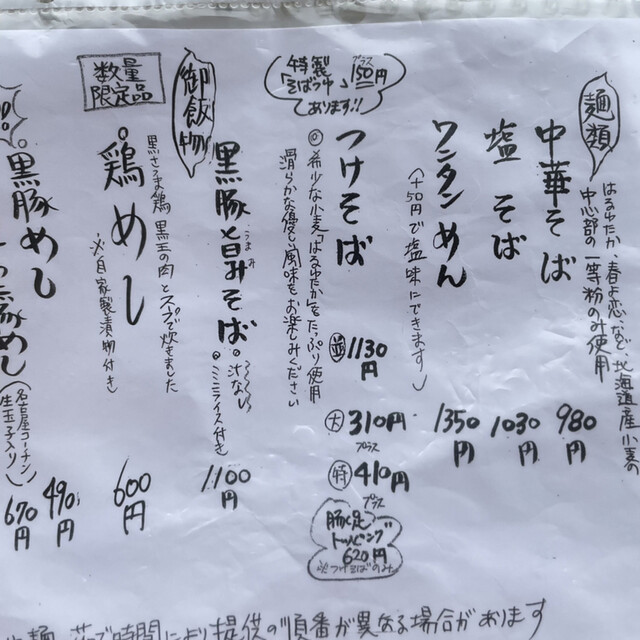 麺類
はるゆたか、春よ恋など、北海道産小麦の
中心部の一等粉のみ使用
中華そば 980円
塩そば 1030円
ワンタンめん 1350円
(+50円で塩味にできます)
特製
そばつゆ、プラス150円
あります!!
つけそば
並 1130円
大 プラス 310円
特 プラス 410円
◎希少な小麦「はるゆたか」をたっぷり使用
滑らかな優しい風味をお楽しみください
プラス
豚足
トッピング
620円
※つけそばのみ
黒豚旨みそば 1100円
うまみ
◦汁なし
◦ミニライス付き
御飯物
数量
限定品
鶏めし 600円
黒さつま鶏 黒王の肉とスープで炊きました
※自家製漬物付き
黒豚めし 490円
豚めし 670円
(名古屋コーチン
生玉子入り)
時間により提供の順番が異なる場合があります